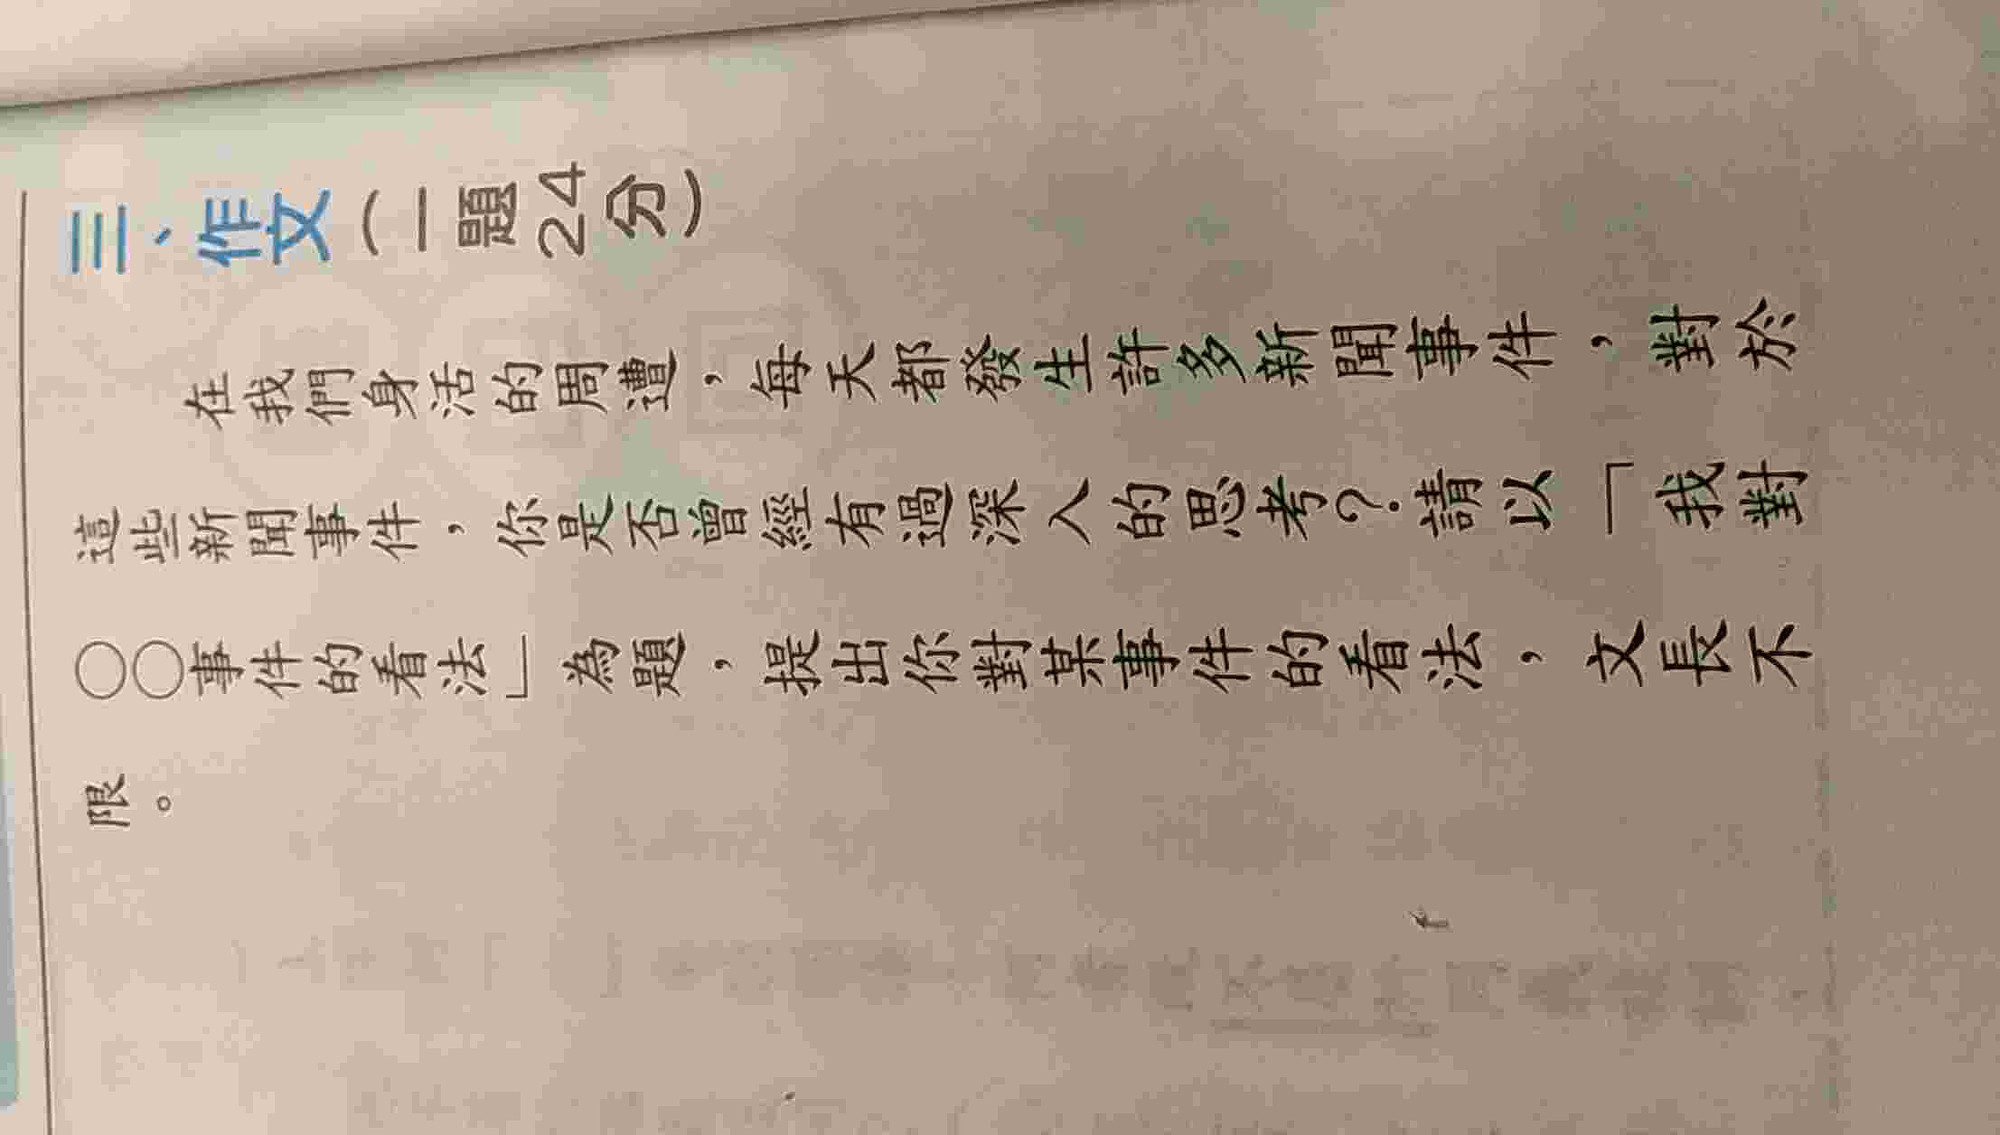 三、作文(一題24分)
在我們身活的周遭，每天都發生許多新聞事件，對於
這些新聞事件，你是否曾經有過深入的思考？請以「我對
○○事件的看法」為題，提出你對某事件的看法，文長不
限。